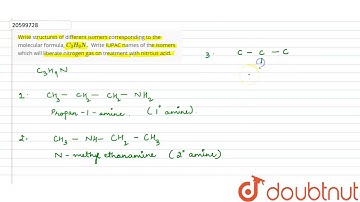 20599728
Write structures of different isomers corresponding to the
molecular formula, C₃H₉N. Write IUPAC names of the isomers
which will liberate nitrogen gas on treatment with nitrous acid.
C₃H₉N
1. CH₃ - CH₂ - CH₂ - NH₂
Propan-1-amine. (1° amine)
2. CH₃ - NH - CH₂ - CH₃
N-methyl ethanamine (2° amine)
3. C - C - C
doubtnut